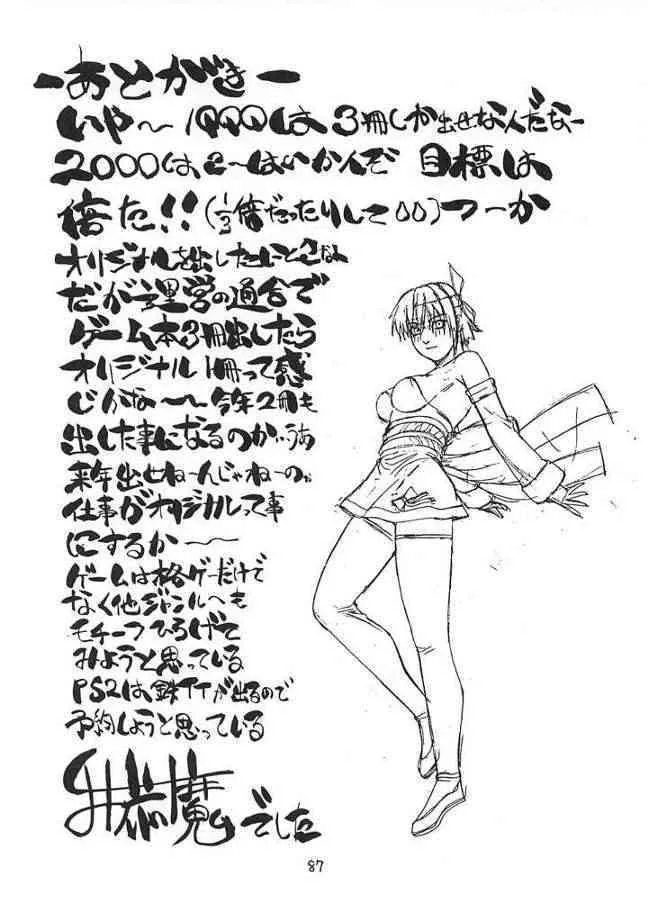 ーあとがきー
いや〜1999は3冊しか出せなんだなー
2000は、2〜はいかんぞ 目標は
倍だ!!(1/3倍だったりして00)つーか
オリジナルを出したいとこだな
だが運営の都合で
ゲーム本3冊出したら
オリジナル1冊って感
じかな〜〜今年2冊も
出した事になるのか…うあ
来年出せね〜んじゃね〜の
仕事がオリジナルって事
にするか〜
ゲームは格ゲーだけで
なく他ジャンルへも
モチーフひろげて
みようと思っている
PS2は鉄TTが出るので
予約しようと思っている
魔でした
87